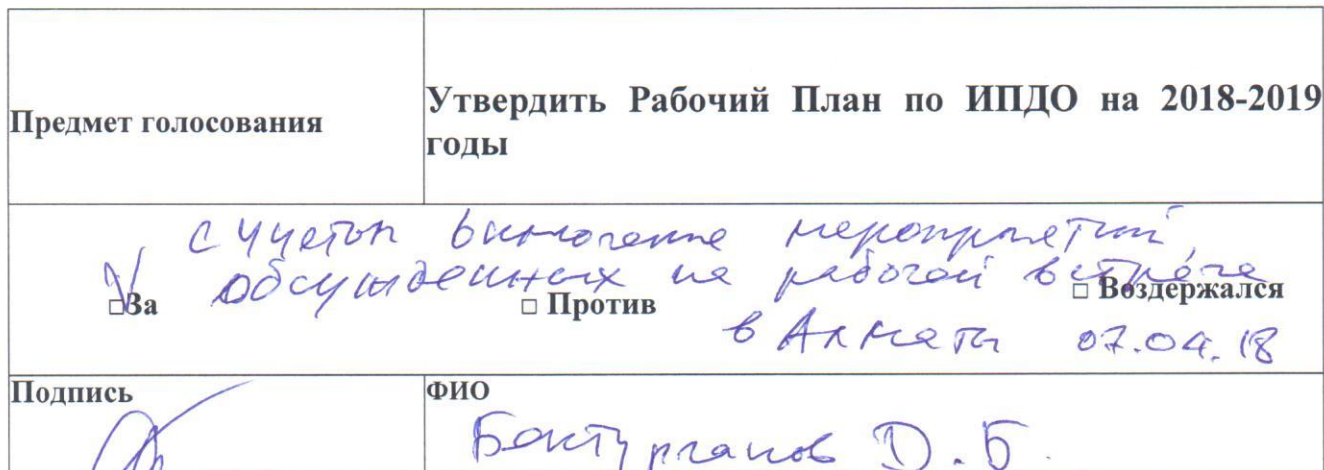 Предмет голосования
Утвердить Рабочий План по ИПДО на 2018-2019
годы
с учетом включение мероприятий,
обсужденных на рабочей встрече
в Алматы 07.04.18
V □За □ Против □ Воздержался
Подпись
ФИО
Бактурганов Д.Б.